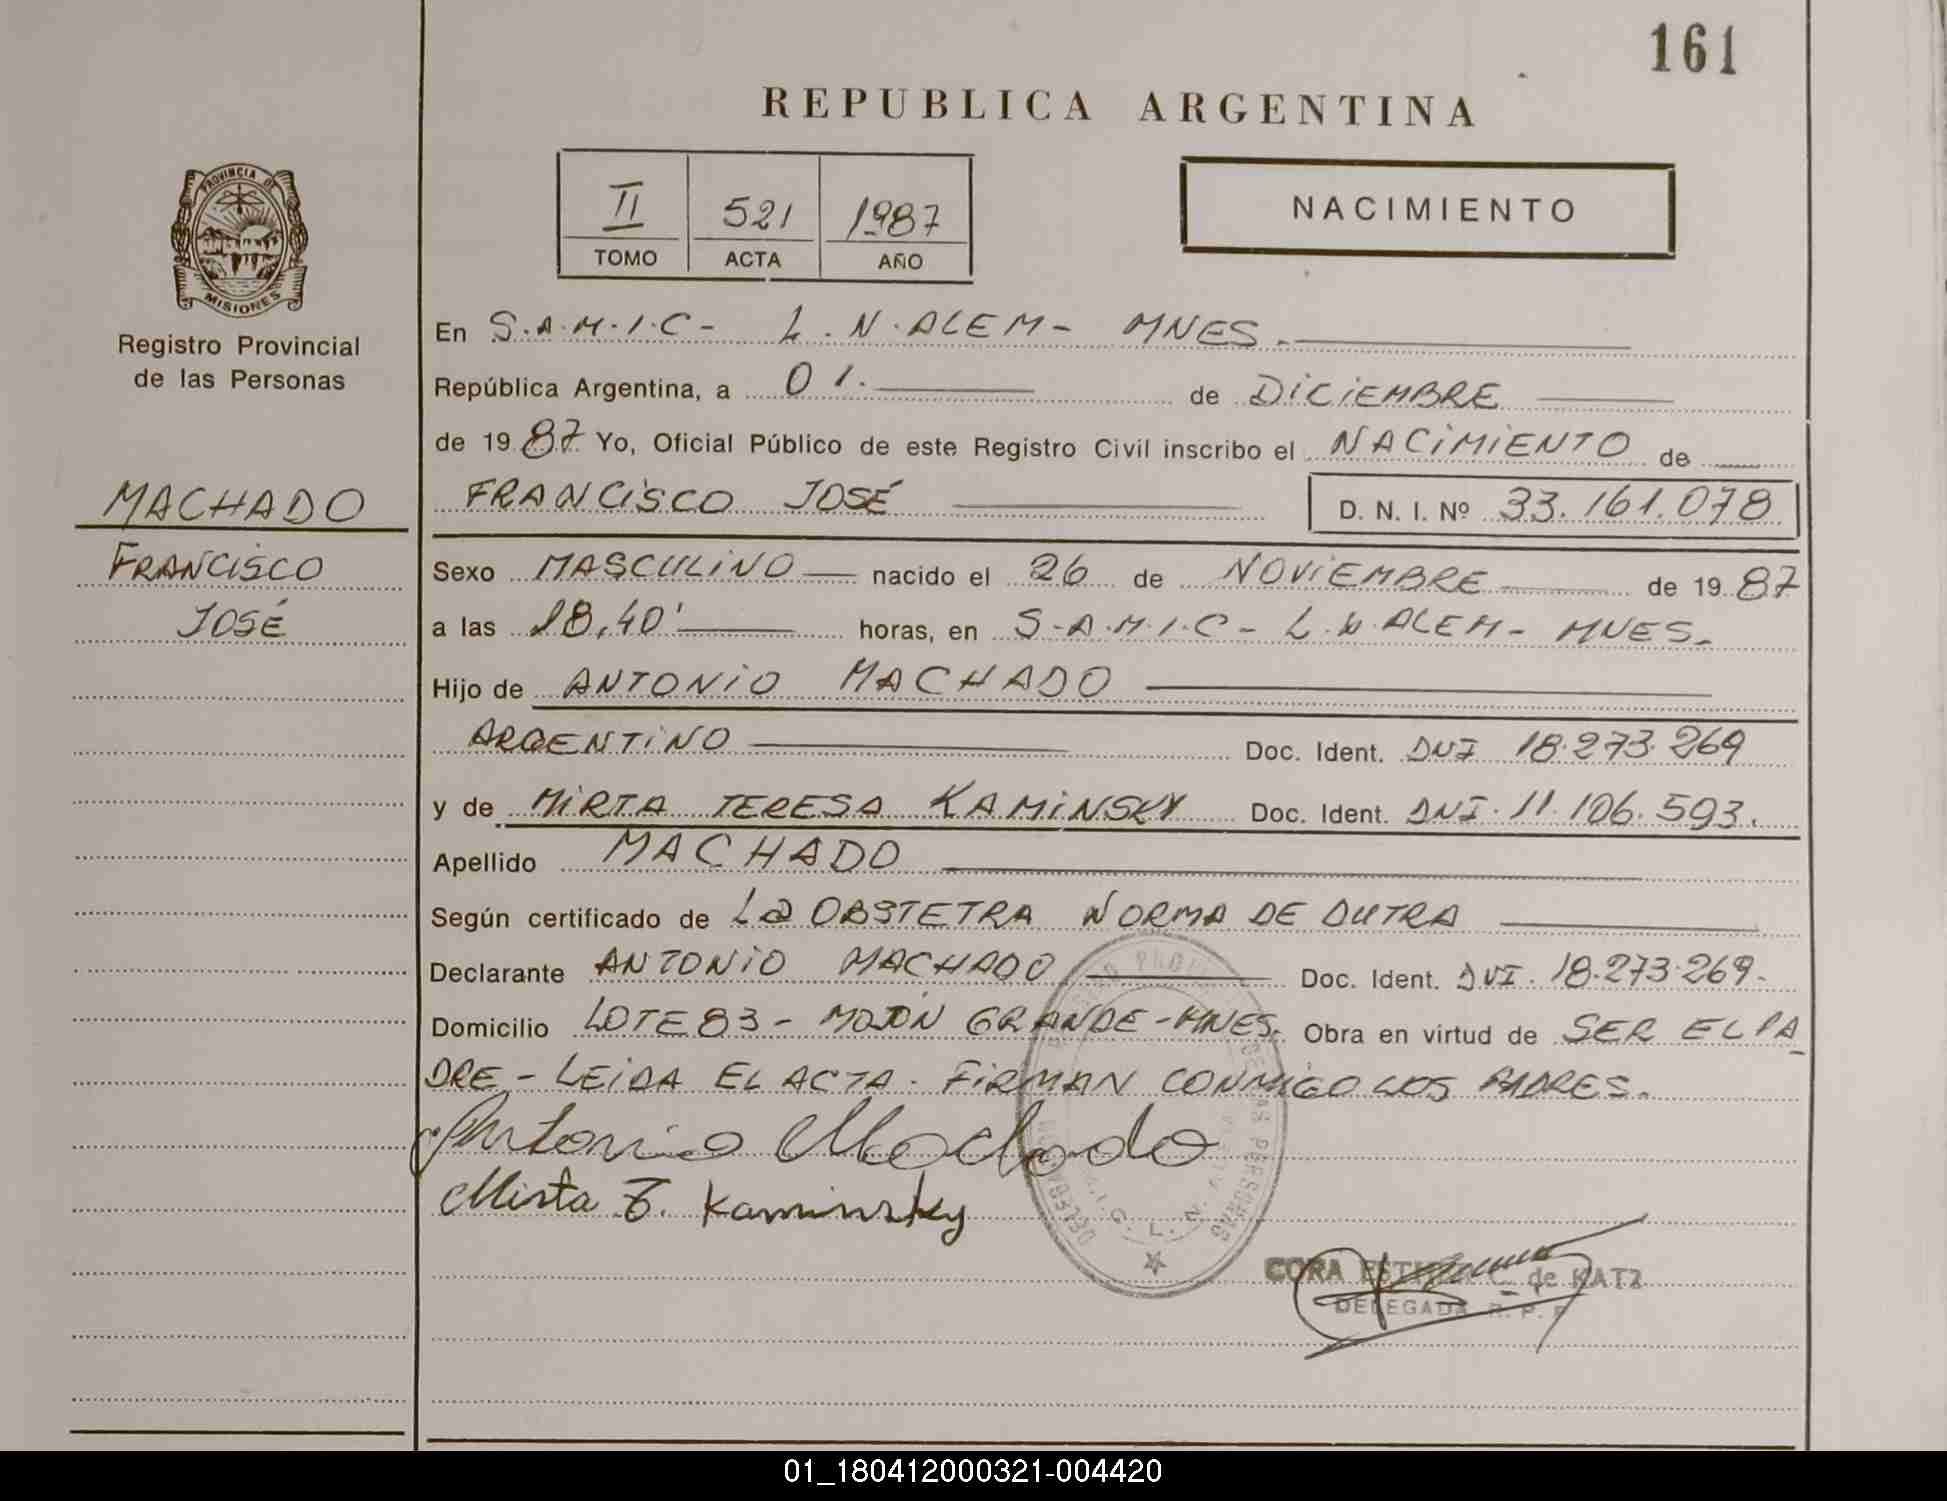 161
REPUBLICA ARGENTINA
II 521 1987
TOMO ACTA AÑO
NACIMIENTO
PROVINCIA DE
MISIONES
Registro Provincial
de las Personas
MACHADO
FRANCISCO
JOSÉ
En S.A.M.I.C- L.N.ALEM- MNES.
República Argentina, a 01. de DICIEMBRE
de 1987 Yo, Oficial Público de este Registro Civil inscribo el NACIMIENTO de
FRANCISCO JOSÉ D. N. I. Nº 33.161.078
Sexo MASCULINO nacido el 26 de NOVIEMBRE de 1987
a las 18,40' horas, en S.A.M.I.C- L.N.ALEM- MNES.
Hijo de ANTONIO MACHADO
ARGENTINO Doc. Ident. DNI 18.273.269
y de MIRTA TERESA KAMINSKY Doc. Ident. DNI. 11.106.593.
Apellido MACHADO
Según certificado de La OBSTETRA NORMA DE DUTRA
Declarante ANTONIO MACHADO Doc. Ident. DNI. 18.273.269-
Domicilio LOTE 83- MOJON GRANDE-MNES. Obra en virtud de SER EL PA
DRE- LEIDA EL ACTA. FIRMAN CONMIGO LOS PADRES.
Antonio Machado
Mirta T. Kaminsky
CORA ESTHER C. de KATZ
DELEGADA R. P. P.
01_180412000321-004420